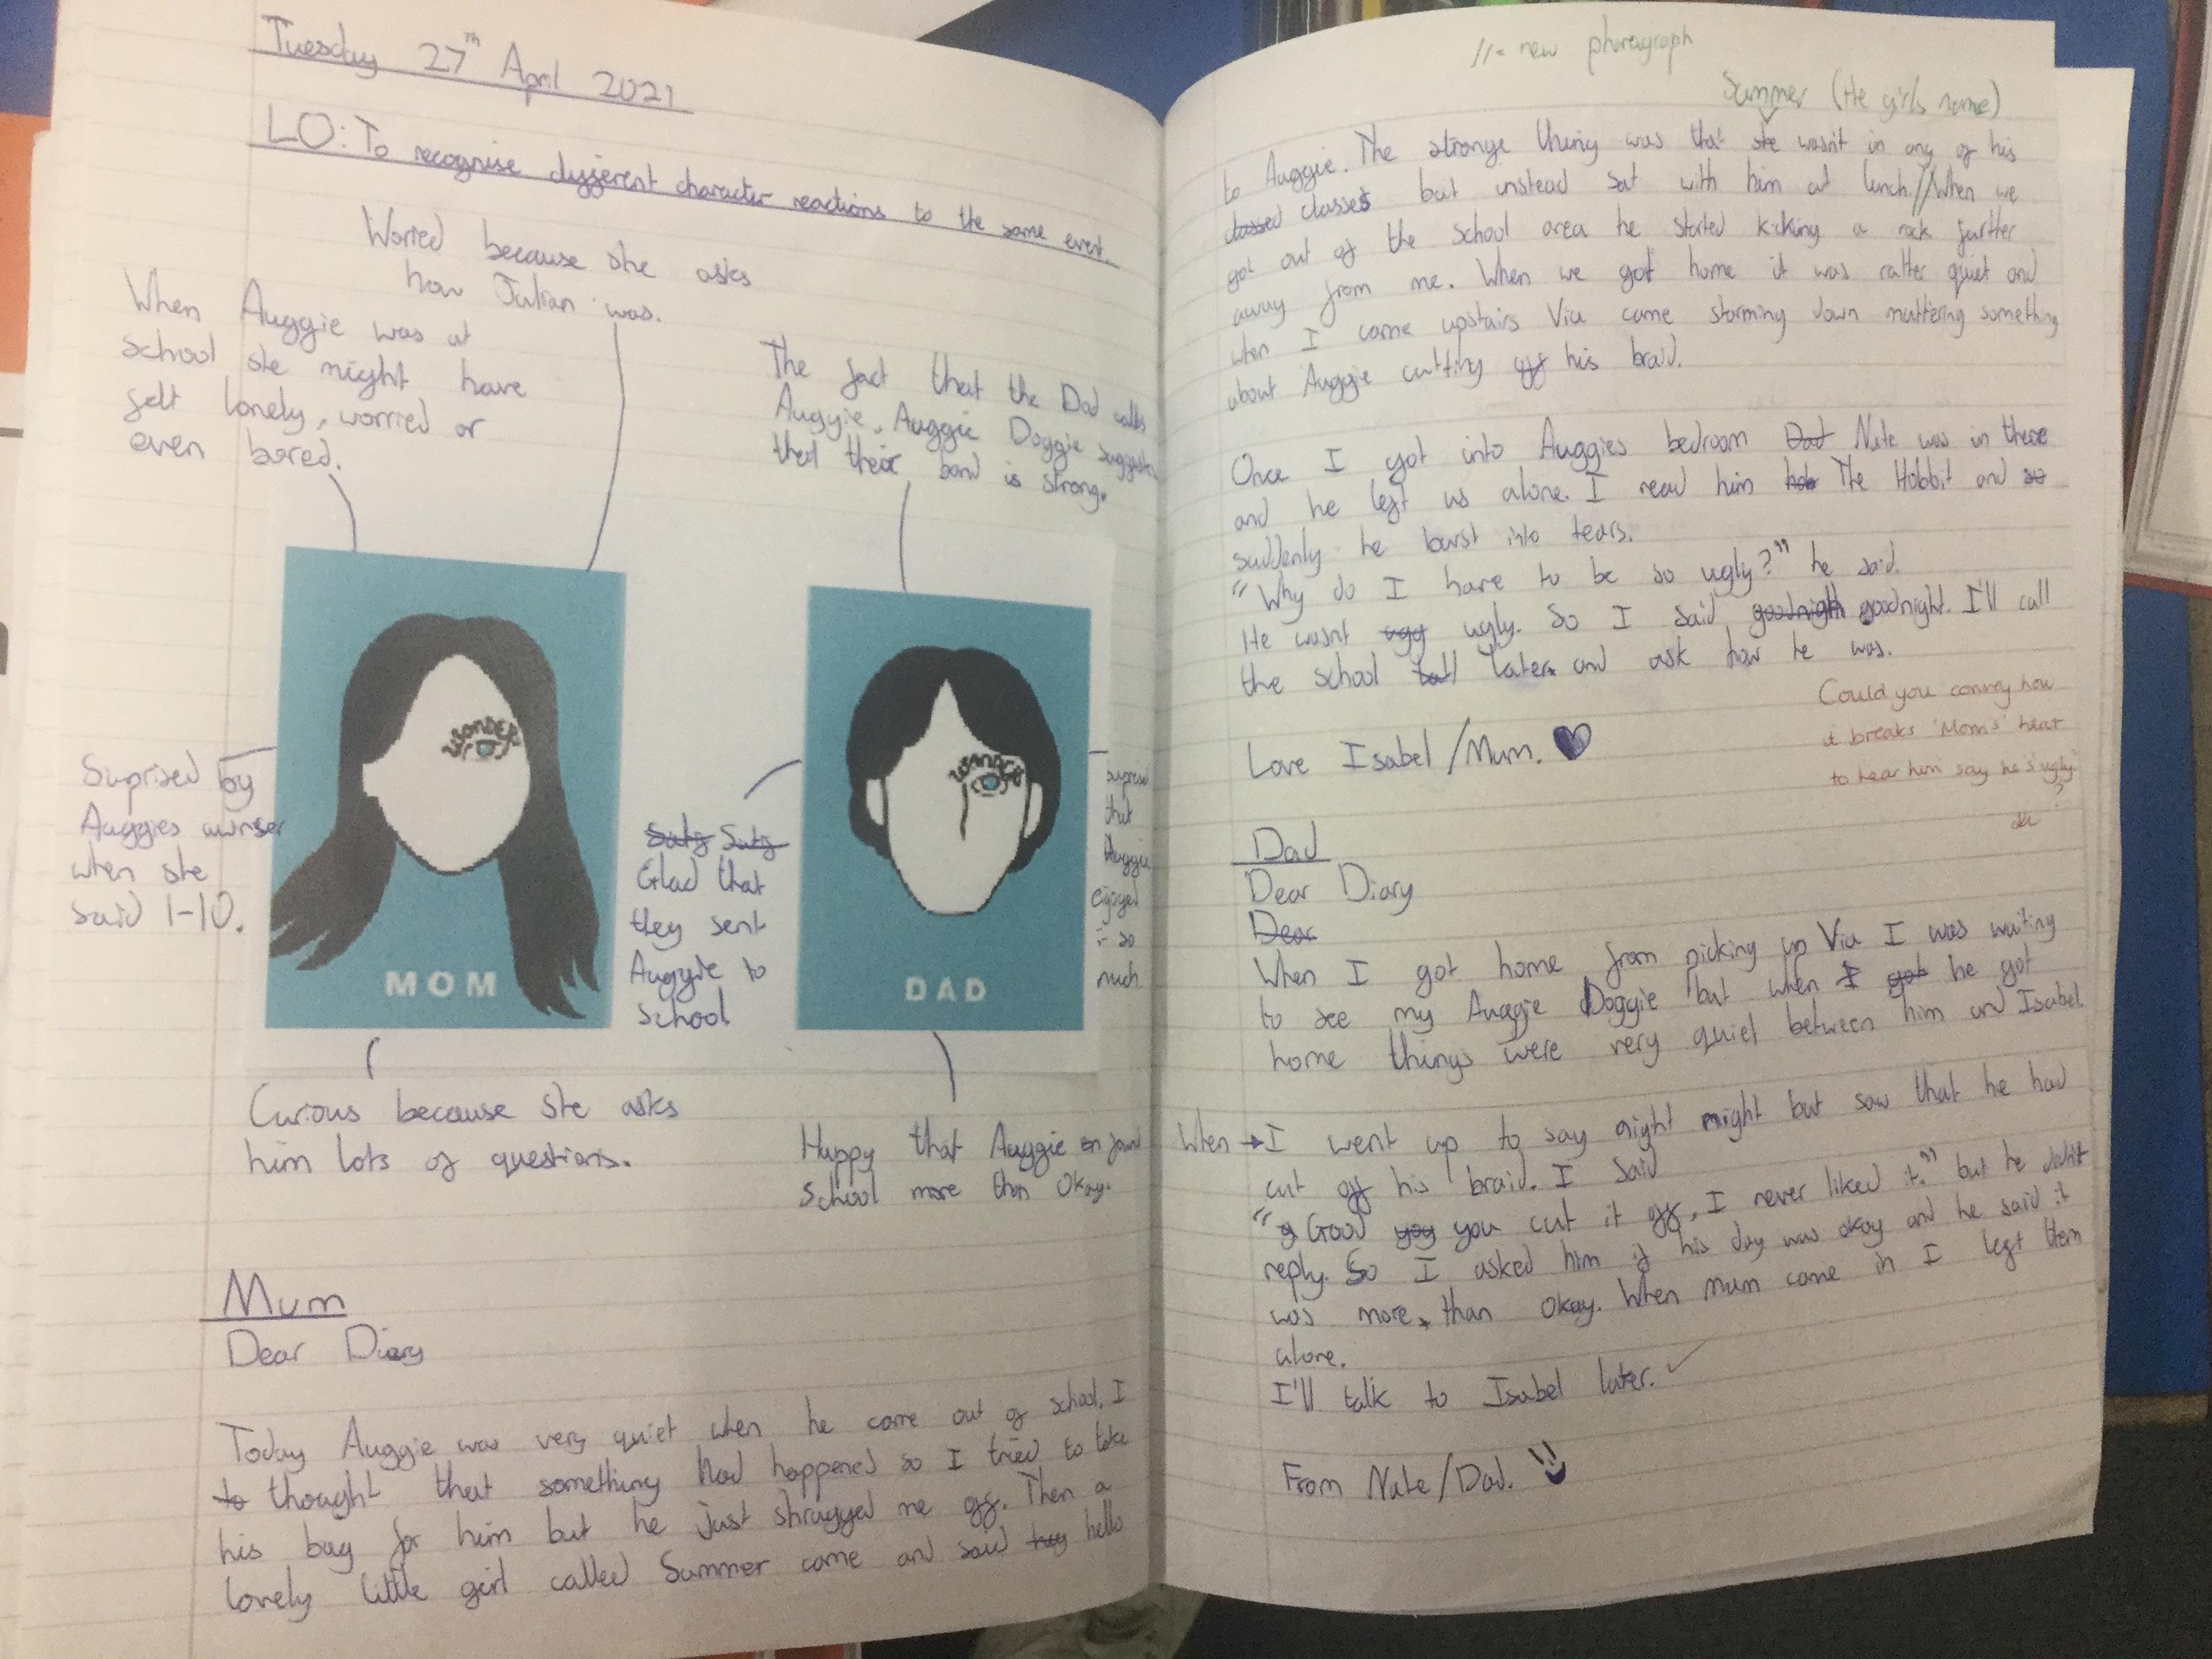 Tuesday 27th April 2021
LO: To recognise different character reactions to the same event.
Worried because she asks
how Julian was.
When Auggie was at
school she might have
felt lonely, worried or
even bored.
The fact that the Dad calls
Auggie, Auggie Doggie suggests
that their bond is strong.
WONDER
MOM
WONDER
DAD
Suprised by
Auggies awnser
when she
said 1-10.
Glad that
they sent
Auggie to
school.
suprised
that
Auggie
enjoyed
it so
much
Curious because she asks
him lots of questions.
Happy that Auggie found
school more than Okay.
Mum
Dear Diary
Today Auggie was very quiet when he came out of school. I
to thought that something had happened so I tried to take
his bag for him but he just shrugged me off. Then a
lovely little girl called Summer came and said hello
//= new pharagraph
Summer (the girls name)
to Auggie. The strange thing was that she wasn't in any of his
classed classes but instead sat with him at lunch.//When we
got out of the school area he started kicking a rock further
away from me. When we got home it was rather quiet and
when I came upstairs Via came storming down muttering something
about Auggie cutting off his braid.
Once I got into Auggies bedroom Dad Nate was in there
and he left us alone. I read him hob The Hobbit and so
suddenly he burst into tears.
"Why do I have to be so ugly?" he said.
He wasnt ugy ugly. So I said goodnigh goodnight. I'll call
the school later and ask how he was.
Could you convey how
it breaks 'Mom's' heart
to hear him say he's ugly
?
Love Isabel/Mum. ♥
Dad
Dear Diary
Dear
When I got home from picking up Via I was waiting
to see my Auggie Doggie but when I got he got
home things were very quiet between him and Isabel.
When → I went up to say night might but saw that he had
cut off his braid. I said
"g Good yoy you cut it off, I never liked it." but he didn't
reply. So I asked him if his day was okay and he said it
was more than Okay. When mum came in I left them
alone.
I'll talk to Isabel later. ✓
From Nate/Dad.